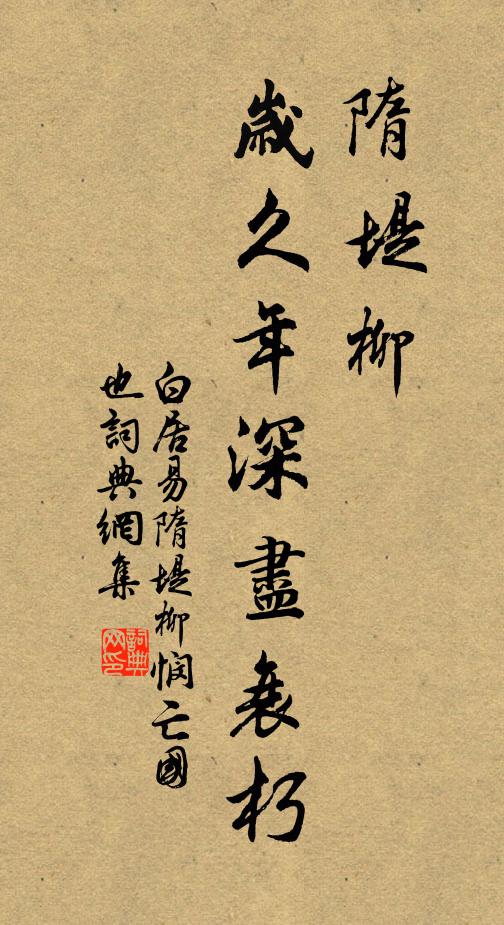 隋堤柳
歲久年深盡衰朽
白居易隋堤柳憫亡國
也詞典網集
詞典
网印